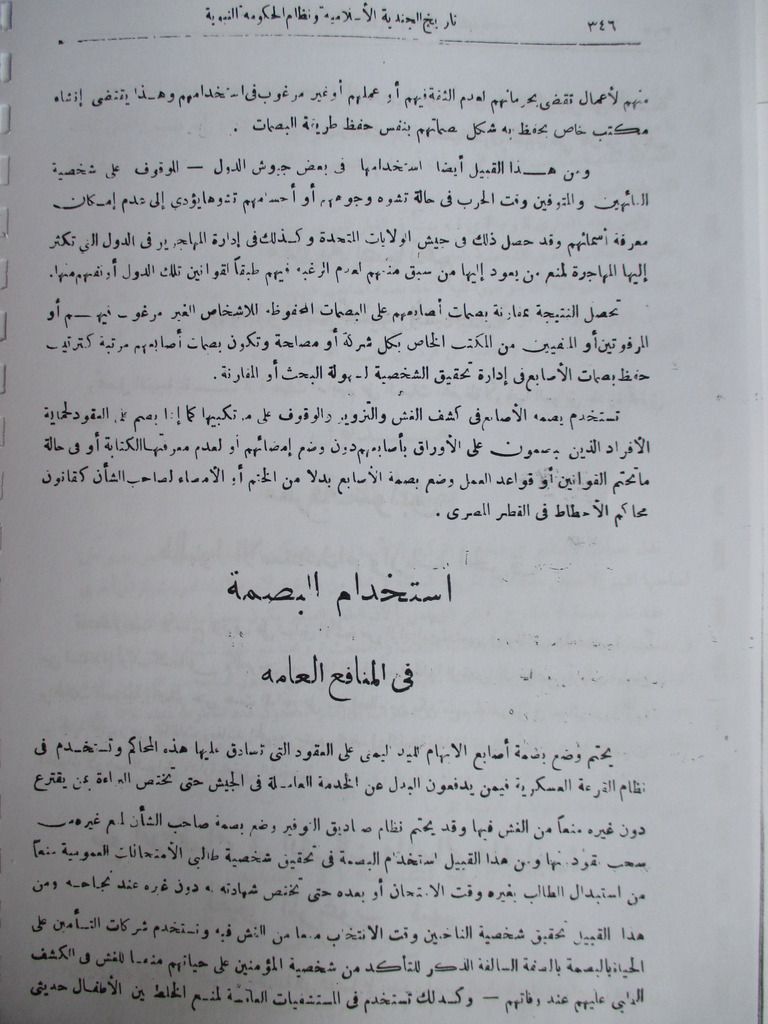 ٣٤٦
تاريخ الجندية الأسلامية ونظام الحكومه النبوية
منهم لأعمال تقضى بحرمانهم لعدم الثقة فيهم أو عملهم أو غير مرغوب فى استخدامهم وهذا يقتضى إنشاء
مكتب خاص يحفظ به شكل بصماتهم بنفس حفظ طريقة البصمات .
ومن هذا القبيل أيضا استخدامها فى بعض جيوش الدول — للوقوف على شخصية
التائهين والمتوفين وقت الحرب فى حالة تشوه وجوههم أو أجسامهم تشوها يؤدي إلى عدم إمكان
معرفة أسمائهم وقد حصل ذلك فى جيش الولايات المتحدة وكذلك فى إدارة المهاجرين فى الدول التى تكثر
إليها المهاجرة لمنع من يعود إليها من سبق منعهم لعدم الرغبه فيهم طبقاً لقوانين تلك الدول أو نفيهم منها .
تحصل النتيجة بمقارنة بصمات أصابعهم على البصمات المحفوظه للاشخاص الغير مرغوب فيهم أو
المرفوتين أو المنفيين من المكتب الخاص بكل شركة أو مصلحة وتكون بصمات أصابعهم مرتبة كترتيب
حفظ بصمات الأصابع فى إدارة تحقيق الشخصية لسهولة البحث أو المقارنة .
تستخدم بصمه الأصابع فى كشف الغش والتزوير والوقوف على مرتكبيها كما إذا بصم على العقود لحماية
الأفراد الذين يبصمون على الأوراق بأصابعهم دون وضع إمضائهم أو لعدم معرفتها الكتابة أو فى حالة
ما تحتم القوانين أو قواعد العمل وضع بصمة الأصابع بدلا من الختم أو الأمضاء لصاحب الشأن كقانون
محاكم الأخطاط فى القطر المصرى .
استخدام البصمة
فى المنافع العامه
يحتم وضع بصمة أصابع الابهام لليد اليمنى على العقود التى تصادق عليها هذه المحاكم وتستخدم فى
نظام القرعة العسكرية فيمن يدفعون البدل عن الخدمة العاملة فى الجيش حتى تختص البراءة بمن يقترع
دون غيره منعاً من الغش فيها وقد يحتم نظام صناديق التوفير وضع بصمة صاحب الشأن لمنع غيره من
سحب نقوده منها ومن هذا القبيل استخدام البصمة فى تحقيق شخصية طالبى الأمتحانات العمومية منعاً
من استبدال الطالب بغيره وقت الامتحان أو بعده حتى تختص شهادته به دون غيره عند نجاحه ومن
هذا القبيل تحقيق شخصية الناخبين وقت الانتخاب منعا من الغش فيه وتستخدم شركات التأمين على
الحياة بالبصمة بالصفة السالفة الذكر للتأكد من شخصية المؤمنين على حياتهم منعا للغش فى الكشف
الطبى عليهم عند وفاتهم — وكذلك تستخدم فى المستشفيات لمنع الخلط بين الأطفال حديثى